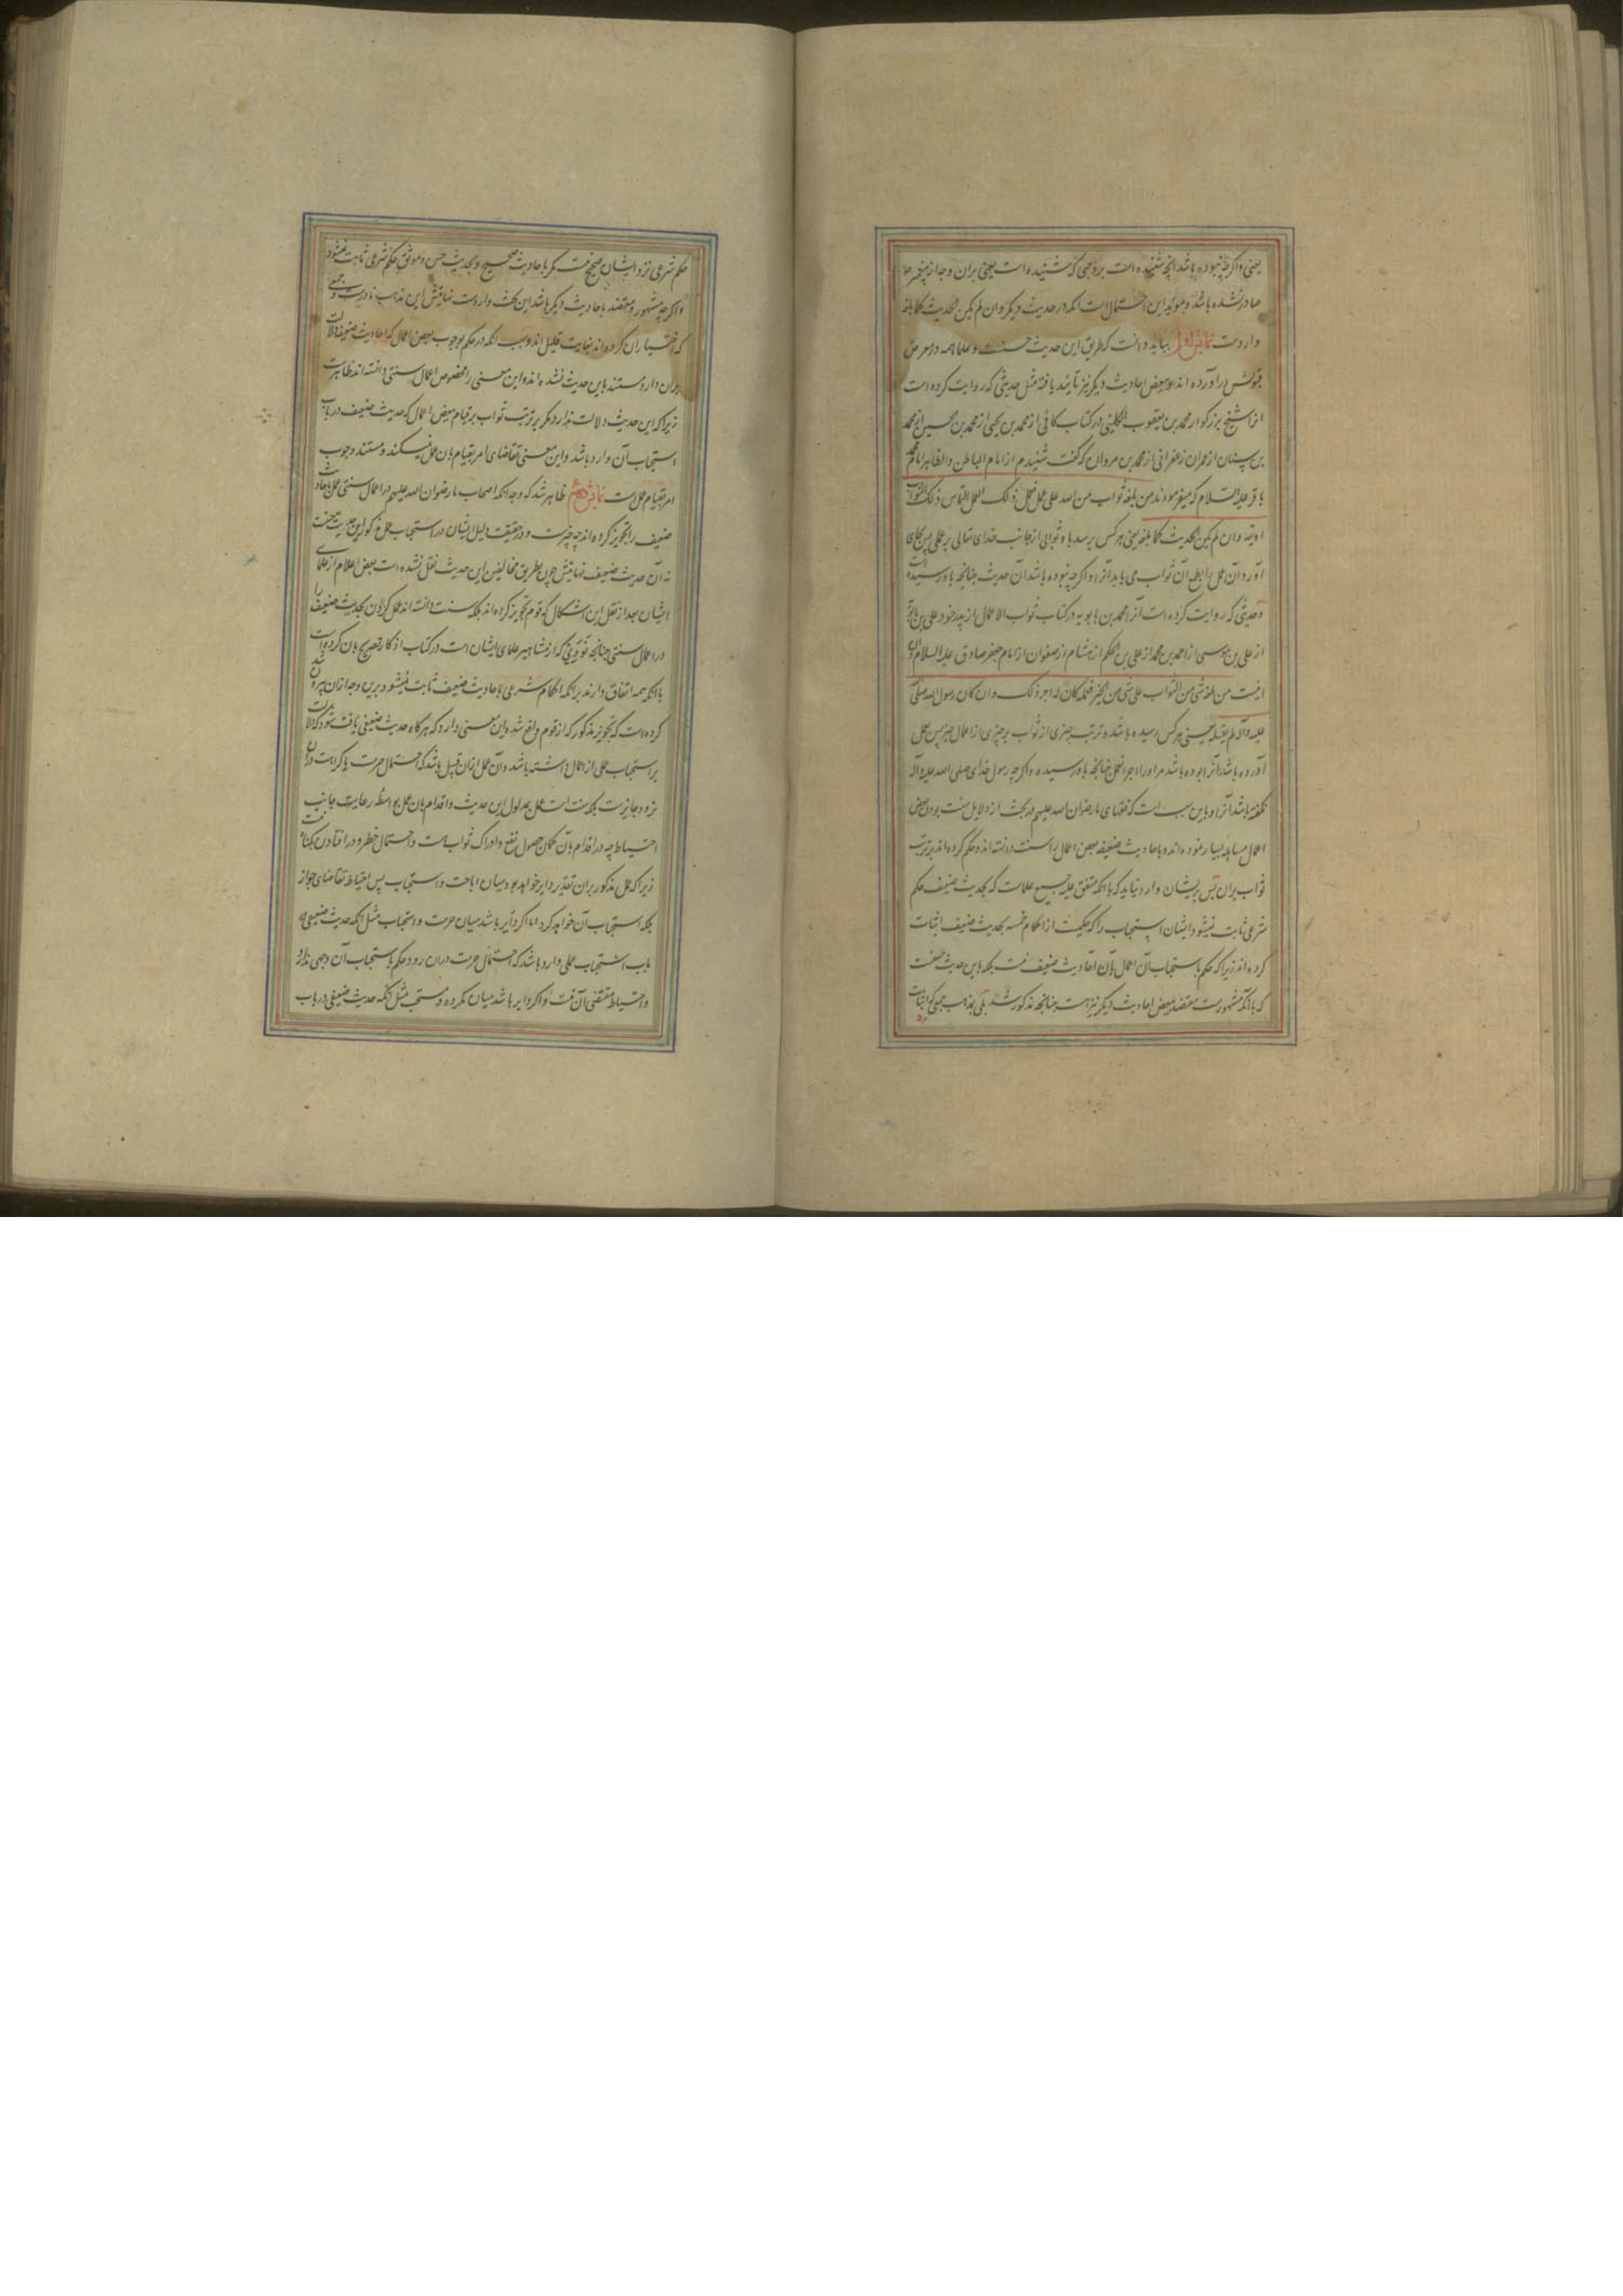 یعنی واکرچه نبوده باشد آنچه شنیده است بروجهی که شنیده است یعنی بران وجه از پیغمبر
صادر نشده باشد و موید این احتمال است انکه در حدیث دیکر وان لم یکن الحدیث کما بلغه
واردست نمایش اول بباید دانست که طریق این حدیث حسنست و علما همه در معرض
قبولش در آورده اند و ببعض احادیث دیکر نیز تائید یافته مثل حدیثی که روایت کرده است
انرا شیخ بزرکوار محمد بن یعقوب الکلینی در کتاب کافی از محمد بن یحیی از محمد بن الحسین از محمد
بن سنان از عمران زعفرانی از محمد بن مروان که کفت شنیدم از امام الباطن والظاهر امام محمد
باقر علیه السلام که میفرمودند من بلغه ثواب من الله علی عمل فعمل ذلک العمل التماس ذلک الثواب
اوتیه وان لم یکن الحدیث کما بلغه یعنی هر کس برسد باو ثوابی از جانب خدای تعالی بر عملی پس بجای
آورد آن عمل را بطمع آن ثواب می یابد آنرا و اکرچه نبوده باشد آن حدیث چنانچه باو رسیده است
و حدیثی که روایت کرده است آنرا محمد بن بابویه در کتاب ثواب الاعمال از پدر خود علی بن بابویه
از علی بن موسی از احمد بن محمد از علی بن الحکم از هشام از صفوان از امام جعفر صادق علیه السلام وان
اینست من بلغه شی من الثواب علی شی من الخیر فعمله کان له اجر ذلک وان کان رسول الله صلی الله
علیه وآله لم یقله یعنی هر کس رسیده باشد باو ترتب چیزی از ثواب بر چیزی از اعمال خیر پس بعمل
آورده باشد آنرا بوده باشد مر او را اجر انعمل چنانچه باو رسیده و اکرچه رسول خدای صلی الله علیه وآله
نکفته باشد آنرا و باین سبب است که فقهای ما رضوان الله علیهم در بحث از دلایل سنت بودن بعض
اعمال مساهله بسیار نموده اند و باحادیث ضعیفه بعض اعمال را سنت دانسته اند و حکم کرده اند بترتب
ثواب بران پس بریشان وارد نیاید که باانکه متفق علیه جمیع علماست که بحدیث ضعیف حکم
شرعی ثابت نمیشود ایشان استحباب را که حکمیست از احکام خمسه بحدیث ضعیف اثبات
کرده اند زیرا که حکم باستحباب آن اعمال بآن احادیث ضعیف نیست بلکه باین حدیث حسنست
که باآنکه مشهورست معتضد ببعض احادیث دیکر نیز هست چنانچه مذکور شد بلی بمذهب جمعی که اثبات
حکم شرعی نزد ایشان صحیح نیست مکر باحادیث صحیح و بحدیث حسن و موثق حکم شرعی ثابت نمیشود
واکرچه مشهور و معتضد باحادیث دیکر باشد این بحث واردست نهایتش این مذهب نادرست و جمعی
که اختیار ان کرده اند بغایت قلیل اند و سبب انکه در حکم بوجوب بعض اعمال که احادیث ضعیف دلالت
بران دارد مستند باین حدیث نشده اند و این معنی را مخصوص اعمال سنتی دانسته اند ظاهرست
زیرا که این حدیث دلالت ندارد مکر بر ترتب ثواب بر قیام ببعض اعمال که حدیث ضعیف در باب
استحباب آن وارد باشد و این معنی تقاضای امر بقیام بان عمل نمیکند و مستند وجوب
امر بقیام عمل است نمایش دوم ظاهر شد که وجه انکه اصحاب ما رضوان الله علیهم در اعمال سنتی عمل باحادیث
ضعیف را تجویز کرده اند چه چیزست و در حقیقت دلیل ایشان در استحباب عمل مذکور این حدیث حسنست
نه آن حدیث ضعیف نهایتش چون بطریق مخالفین این حدیث نقل نشده است بعض اعلام از علمای
ایشان بعد از نقل این اشکال که قوم تجویز کرده اند بلکه سنت دانسته اند عمل کردن بحدیث ضعیف را
در اعمال سنتی چنانچه نووی که از مشاهیر علمای ایشان است در کتاب اذکار تصریح بان کرده است
باانکه همه اتفاق دارند برانکه احکام شرعی باحادیث ضعیف ثابت نمیشود برین وجه ازان بیرون شد
کرده است که تجویز مذکور که از قوم واقع شد این معنی دارد که هرکاه حدیث ضعیفی یافت شود که دلالت
بر استحباب عملی از اعمال داشته باشد وآن عمل ازان قبیل باشد که احتمال حرمت یا کراهت دران
نرود جایزست بلکه سنت است عمل بمدلول این حدیث و اقدام بان عمل بواسطه رعایت جانب
احتیاط چه در اقدام بآن کمان حصول نفع و ادراک ثواب هست و احتمال خطر و در افتادن بکناه نیست
زیرا که عمل مذکور بران تقدیر دایر خواهد بود میان اباحت و استحباب پس احتیاط تقاضای جواز
بلکه استحباب آن خواهد کرد اما اکر دایر باشد میان حرمت و استحباب مثل انکه حدیث ضعیفی در
باب استحباب عملی وارد باشد که احتمال حرمت دران رود حکم باستحباب آن وجهی ندارد
و احتیاط مقتضی آن نیست و اکر دایر باشد میان مکروه و مستحب مثل آنکه حدیث ضعیفی در باب